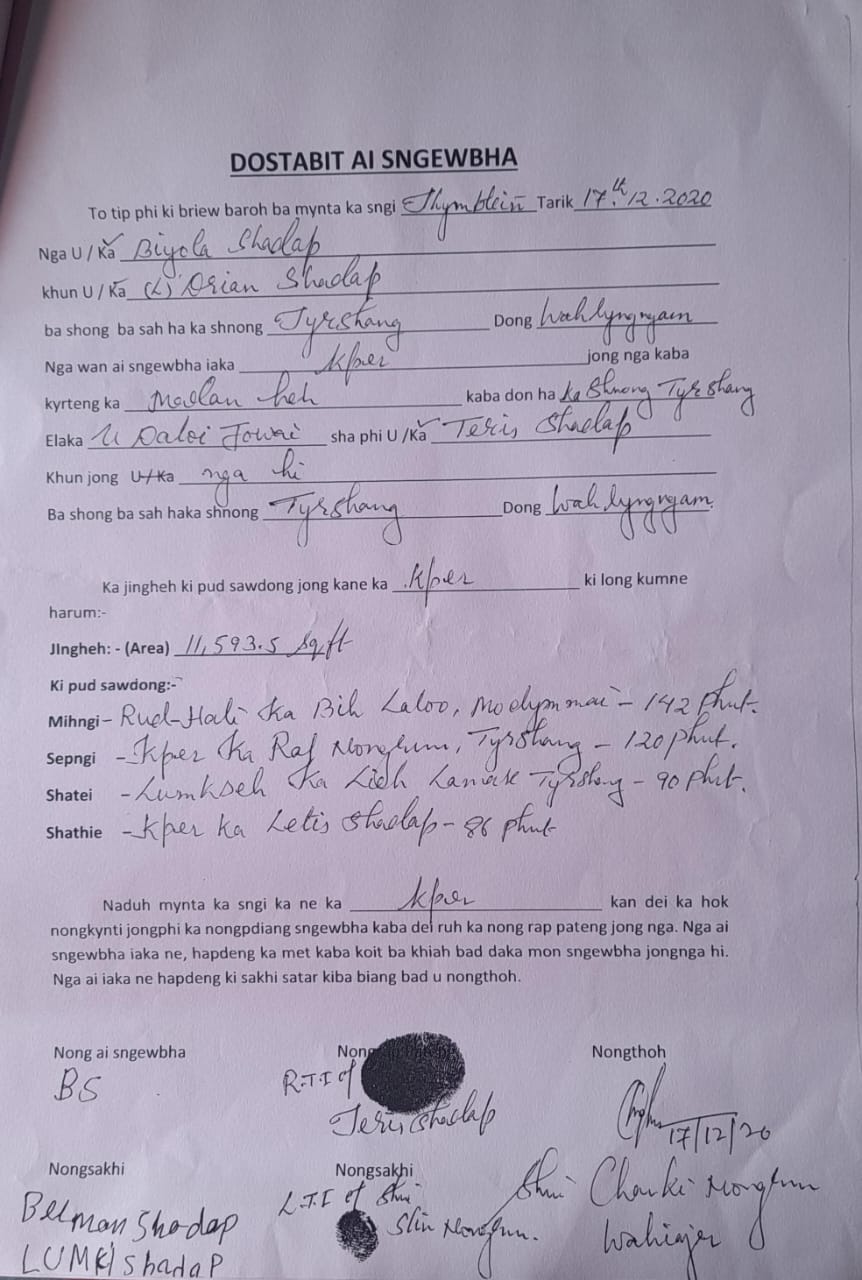 DOSTABIT AI SNGEWBHA
To tip phi ki briew baroh ba mynta ka sngi Thymblein Tarik 17th.12.2020
Nga U / Ka Biyola Shadap
khun U / Ka (L) Orian Shadap
ba shong ba sah ha ka shnong Tyrshang Dong Wahlyngngam
Nga wan ai sngewbha iaka kper jong nga kaba
kyrteng ka Madan heh kaba don ha ka Shnong Tyrshang
Elaka U Daloi Jowai sha phi U /Ka Teris Shadap
Khun jong U/Ka nga hi
Ba shong ba sah haka shnong Tyrshang Dong Wahlyngngam
Ka jingheh ki pud sawdong jong kane ka kper ki long kumne
harum:-
JIngheh: - (Area) 11,593.5 sq.ft
Ki pud sawdong:-
Mihngi - Rud-Hali Ka Bih Laloo, Modymmai - 142 phut.
Sepngi - Kper Ka Raf Nongtum, Tyrshang - 120 phut.
Shatei - Lumkseh Ka Lieh Lamare Tyrshang - 90 phut.
Shathie - Kper ka Letis Shadap - 86 phut
Naduh mynta ka sngi ka ne ka kper kan dei ka hok
nongkynti jongphi ka nongpdiang sngewbha kaba dei ruh ka nong rap pateng jong nga. Nga ai
sngewbha iaka ne, hapdeng ka met kaba koit ba khiah bad daka mon sngewbha jongnga hi.
Nga ai iaka ne hapdeng ki sakhi satar kiba biang bad u nongthoh.
Nong ai sngewbha Nong Nongthoh
BS R.T.I of
Teris Shadap 17/12/20
Nongsakhi Nongsakhi Shri Chanki Nongtum
Belman Shadap L.T.I of Shri
Slin Nongtum. Wahiajer
LUMKI Shadap